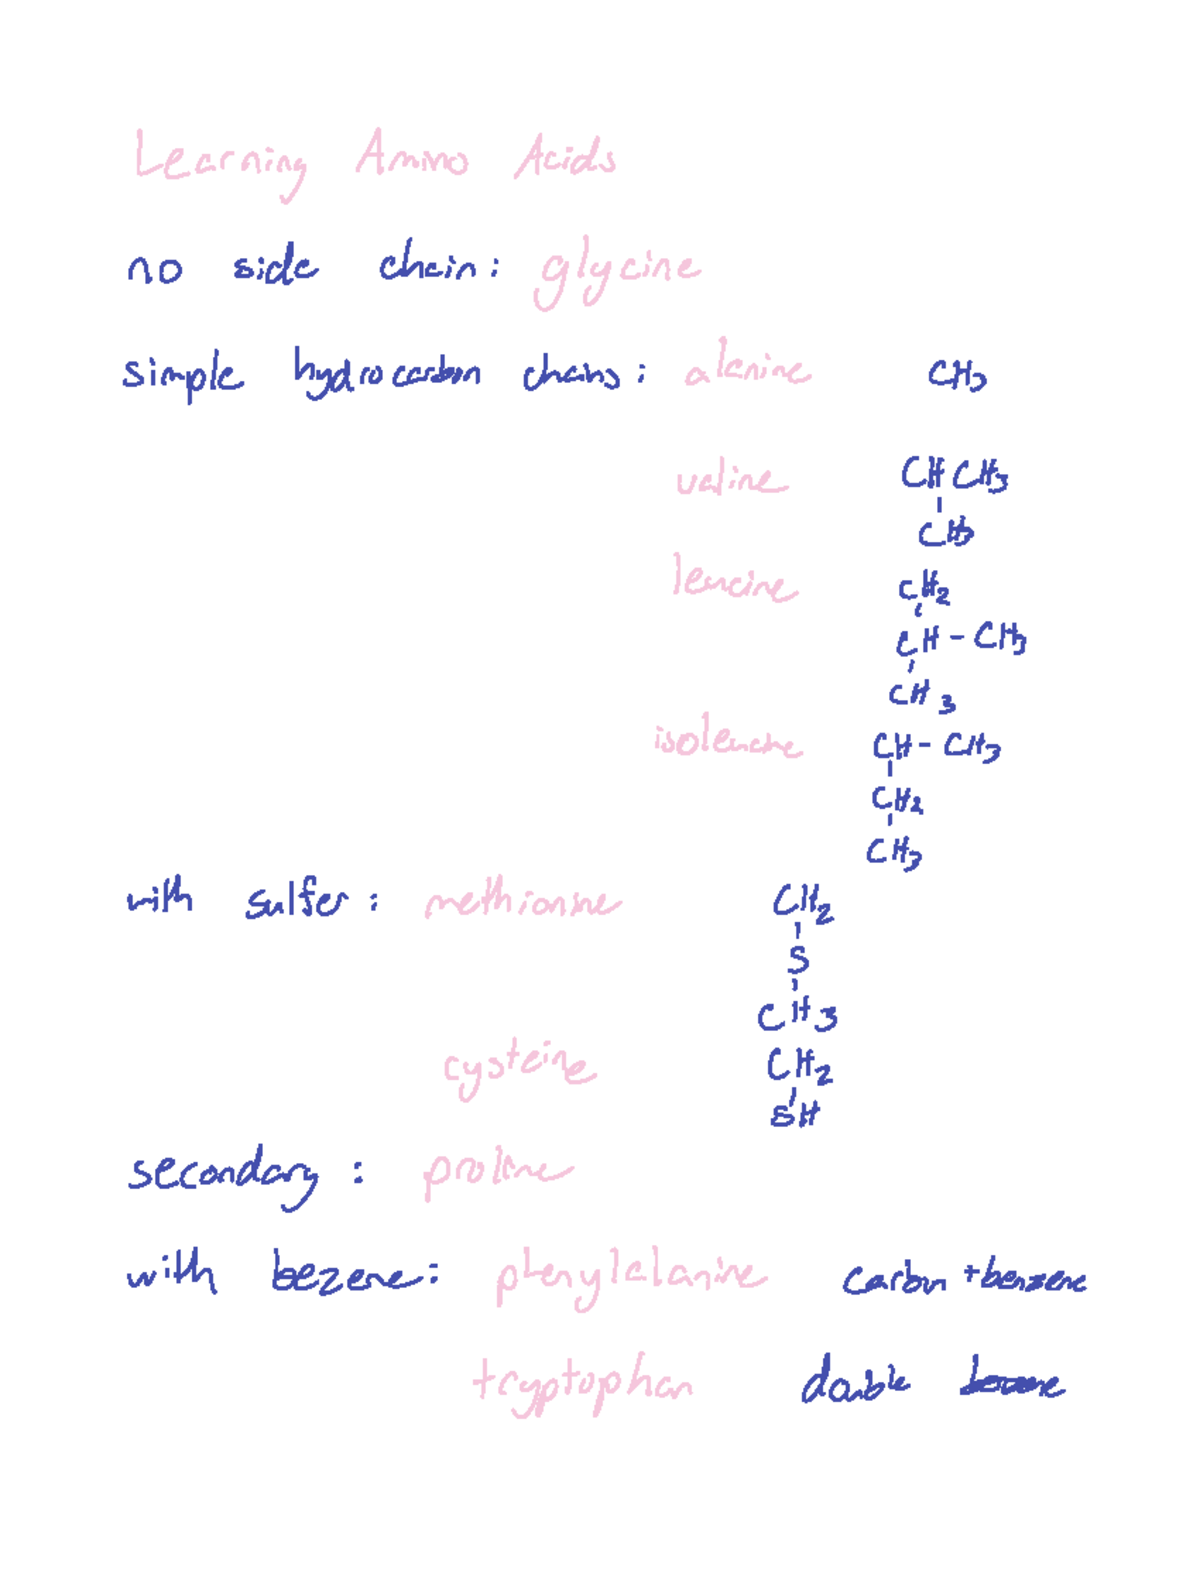 Learning Amino Acids
no side chain: glycine
simple hydrocarbon chains: alanine CH3
valine CH CH3
CH3
leucine CH2
CH - CH3
CH3
isoleucine CH - CH3
CH2
CH3
with sulfer: methionine CH2
S
CH3
cysteine CH2
SH
secondary: proline
with bezene: phenylalanine carbon + benzene
tryptophan double